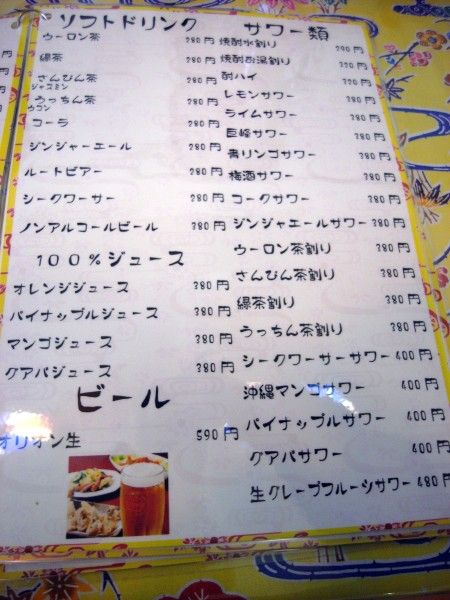 ソフトドリンク
ウーロン茶 280円
緑茶 280円
さんぴん茶 280円
ジャスミン
うっちん茶 280円
ウコン
コーラ 280円
ジンジャーエール 280円
ルートビアー 280円
シークワーサー 280円
ノンアルコールビール 380円
100%ジュース
オレンジジュース 380円
パイナップルジュース 380円
マンゴジュース 380円
グアバジュース 380円
ビール
オリオン生 590円
サワー類
焼酎水割り 290円
焼酎お湯割り 320円
酎ハイ 320円
レモンサワー 380円
ライムサワー 380円
巨峰サワー 380円
青リンゴサワー 380円
梅酒サワー 380円
コークサワー 380円
ジンジャエールサワー 380円
ウーロン茶割り 380円
さんぴん茶割り 380円
緑茶割り 380円
うっちん茶割り 380円
シークワーサーサワー 400円
沖縄マンゴサワー 400円
パイナップルサワー 400円
グアバサワー 400円
生グレープフルーツサワー 480円